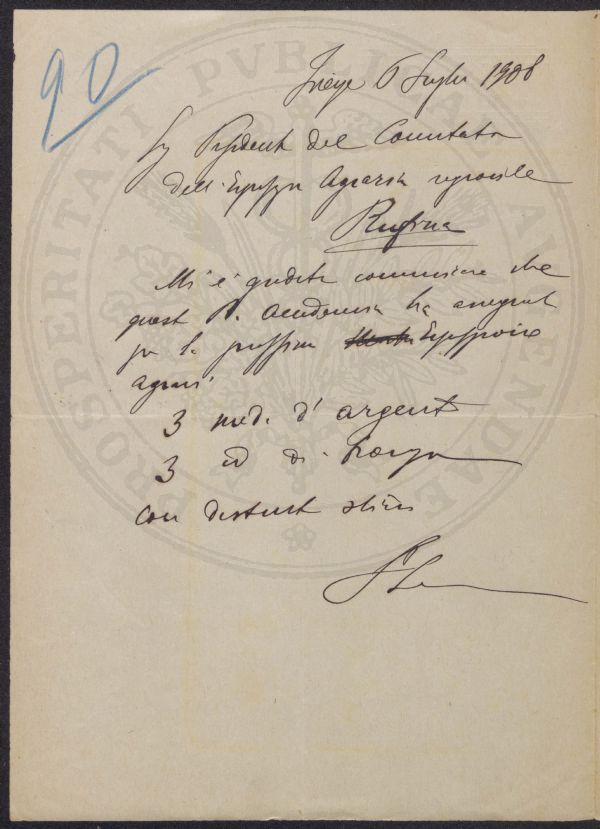 90
Firenze 6 Luglio 1908
Sig Presidente del Comitato
dell'Esposizione Agraria regionale
Rufina
Mi è gradito comunicare che
questa R. Accademia ha assegnato
per la prossima Esposizione
agraria
3 med. d'argento
3 id di bronzo
Con distinta stima
PROSPERITATI PVBLICAE AVGENDAE